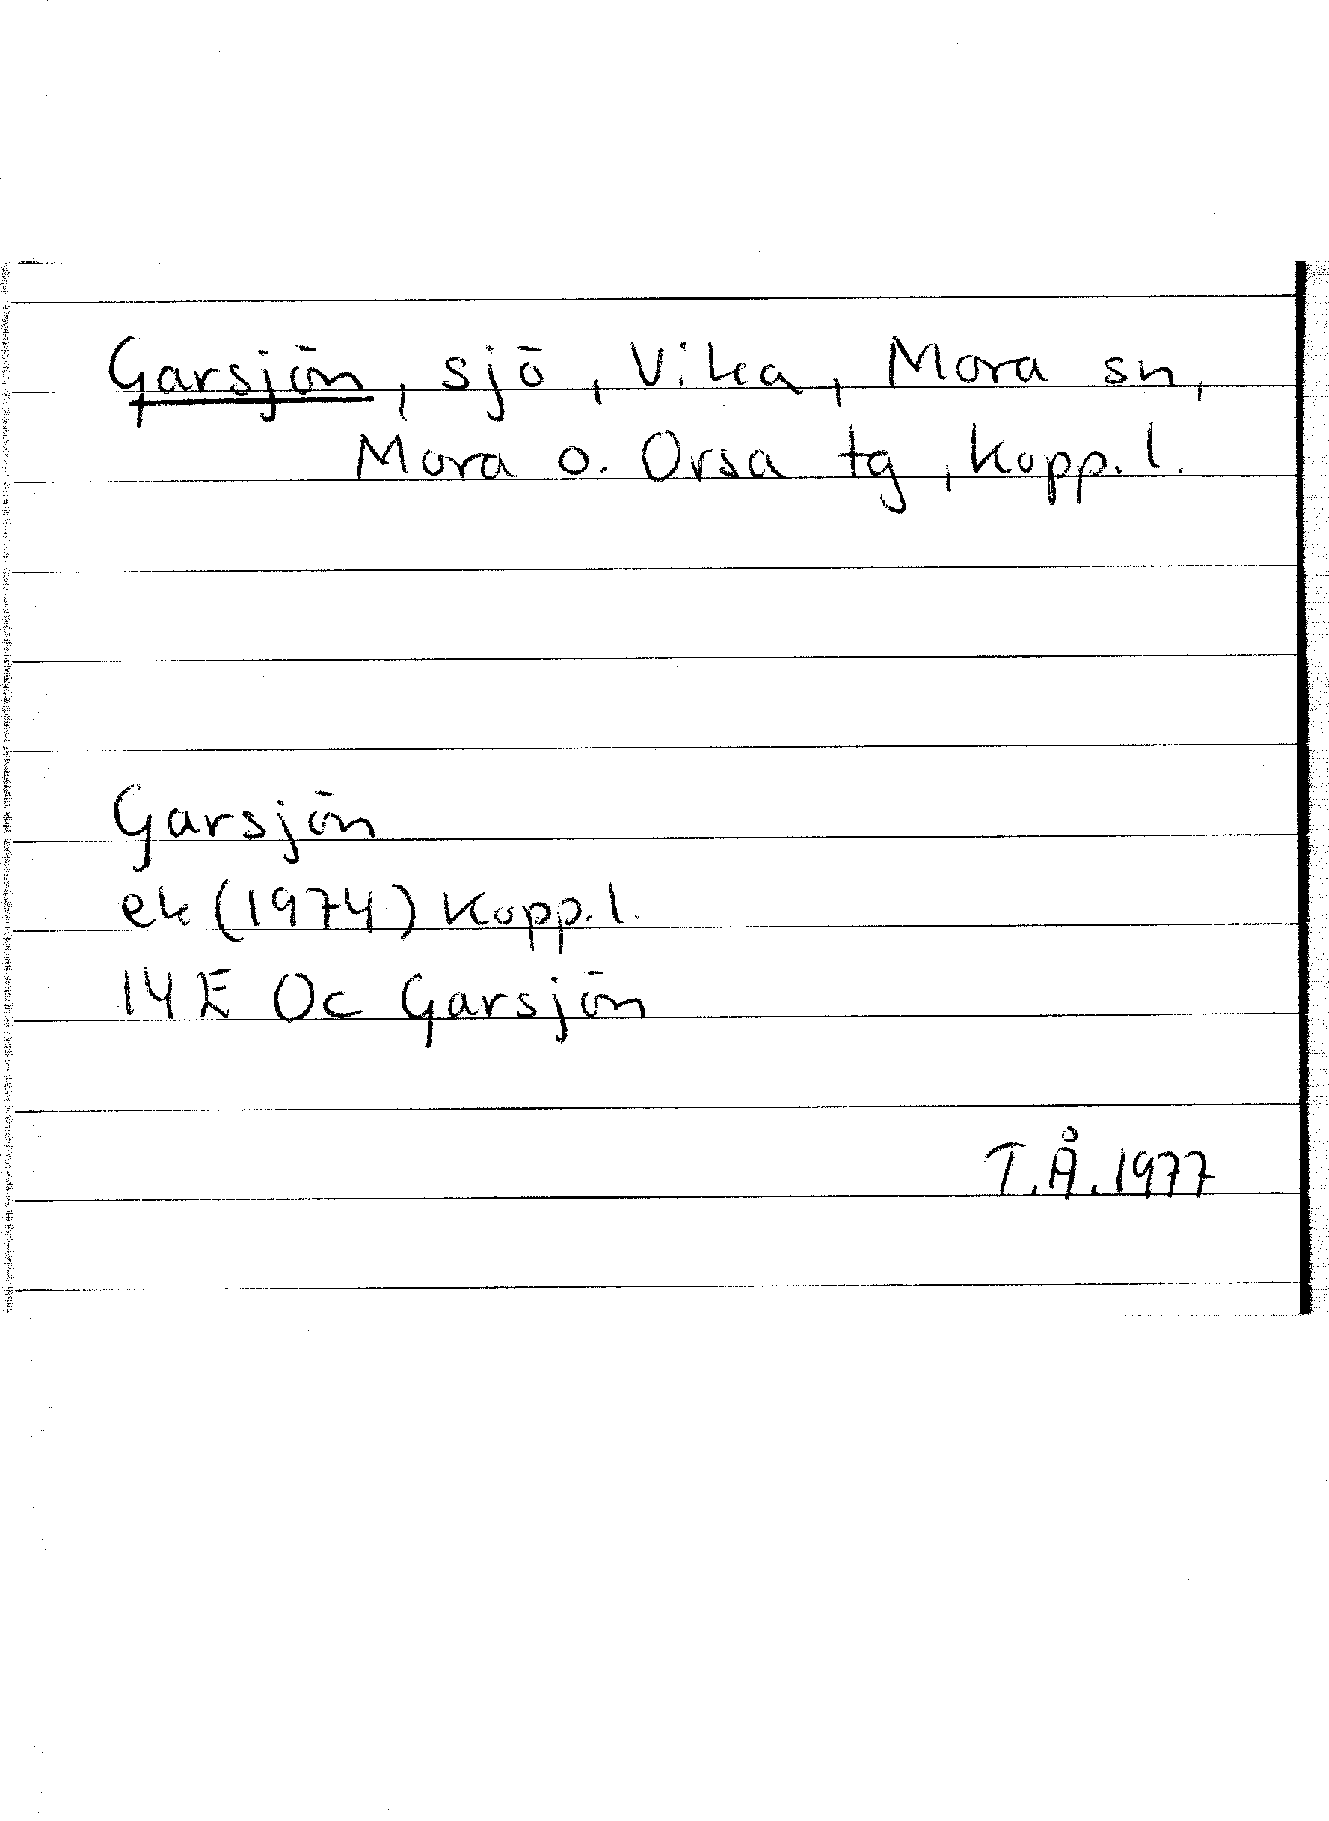 Garsjön, sjö, Vika, Mora sn,
Mora o. Orsa tg, Kopp.l.
Garsjön
ek (1974) Kopp.l.
14 E Oc Garsjön
T.Å.1977